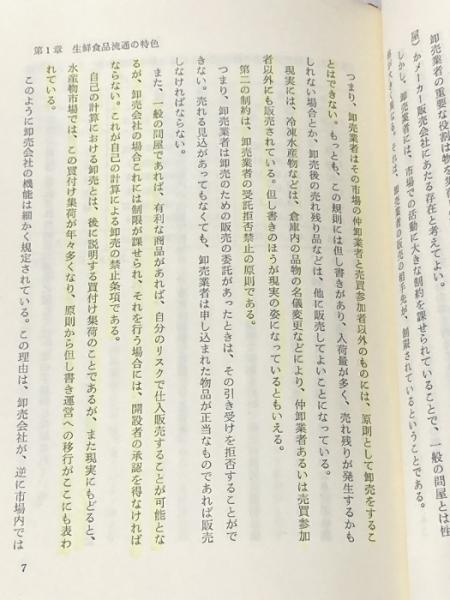 第1章 生鮮食品流通の特色
卸売業者の重要な役割は物を
屋)かメーカー販売会社にあたる存在と考えてよい。
しかし、卸売業者には、市場での活動に大きな制約を課せられていることで、一般の問屋とは性
それは、卸売業者の販売の相手先が、制限されているということである。
つまり、卸売業者はその市場の仲卸業者と売買参加者以外のものには、原則として卸売をするこ
とはできない。もっとも、この規則には但し書きがあり、入荷量が多く、売れ残りが発生するかも
しれない場合とか、卸売後の売れ残り品などは、他に販売してよいことになっている。
現実には、冷凍水産物などは、倉庫内の品物の名儀変更などにより、仲卸業者あるいは売買参加
者以外にも販売されている。但し書きのほうが現実の姿になっているともいえる。
第二の制約は、卸売業者の受託拒否禁止の原則である。
つまり、卸売業者は卸売のための販売の委託があったときは、その引き受けを拒否することがで
きない。売れる見込があってもなくても、卸売業者は申し込まれた物品が正当なものであれば販売
しなければならない。
また、一般の問屋であれば、有利な商品があれば、自分のリスクで仕入販売することが可能とな
るが、卸売会社の場合これには制限が課せられ、それを行う場合には、開設者の承認を得なければ
ならない。これが自己の計算による卸売の禁止条項である。
自己の計算における卸売とは、後に説明する買付け集荷のことであるが、また現実にもどると、
水産物市場では、この買付け集荷が年々多くなり、原則から但し書き運営への移行がここにも表わ
れている。
このように卸売会社の機能は細かく規定されている。この理由は、卸売会社が、逆に市場内では
7